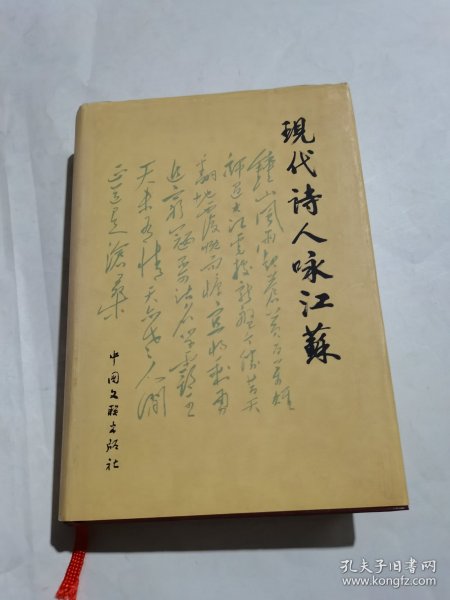 現代詩人咏江蘇
鐘山風雨起蒼黃百萬雄
師過大江虎踞龍盤今勝昔天
翻地覆慨而慷宜將剩勇
追窮寇不可沽名學霸王
天若有情天亦老人間
正道是滄桑
中国文联出版社
孔夫子旧书网
www.kongfz.com